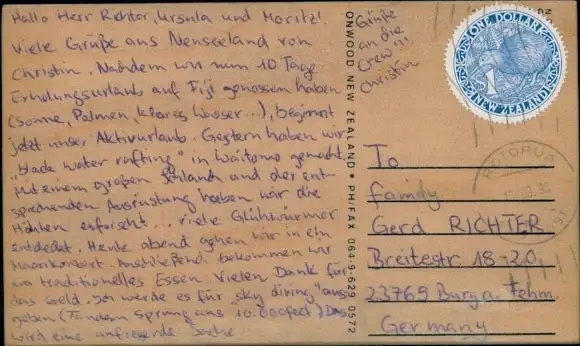 Hallo Herr Richter, Ursula und Moritz!
Viele Grüße aus Neuseeland von
Christin. Nachdem wir nun 10 Tage
Erholungsurlaub auf Fiji genossen haben
(Sonne, Palmen, klares Wasser...), beginnt
jetzt unser Aktivurlaub. Gestern haben wir
"black water rafting" in Waitomo gemacht.
Mit einem großen und der ent-
sprechenden Ausrüstung haben wir die
Höhlen erforscht... viele Glühwürmer
entdeckt. Heute abend gehen wir in ein
Maorikonzert. Anschließend bekommen wir
ein traditionelles Essen. Vielen Dank für
das Geld. Ich werde es für "sky diving" aus-
geben (Tandem Sprung aus 10.000 feet) Das
wird eine Sache
Grüße
an die
Crew!!!
Christin
ONWOOD NEW ZEALAND • PH/FAX 064-9-629 0572
ONE DOLLAR
1
NEW ZEALAND
ROTORUA
To
family
Gerd RICHTER
Breitestr. 18-20
23769 Burg a. Fehm.
Germany